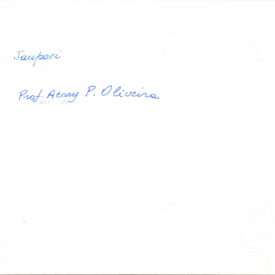 Jauperi
Prof. Acary P. Oliveira